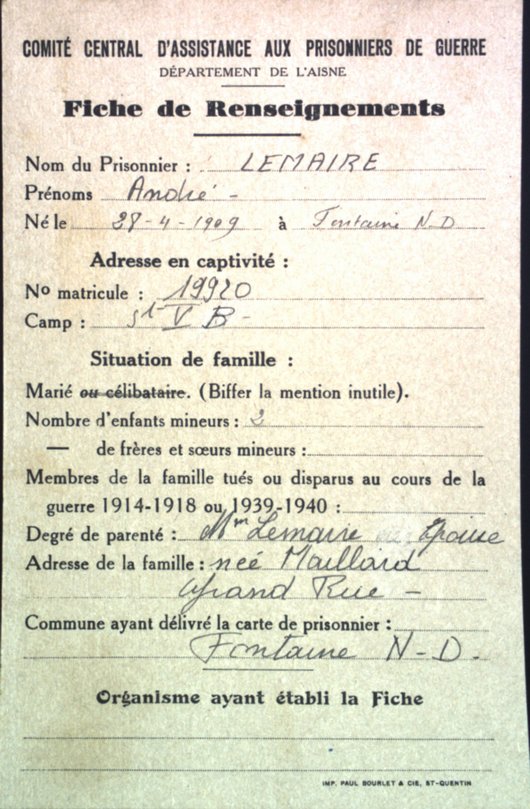 COMITÉ CENTRAL D'ASSISTANCE AUX PRISONNIERS DE GUERRE
DÉPARTEMENT DE L'AISNE
Fiche de Renseignements
Nom du Prisonnier : LEMAIRE
Prénoms André -
Né le 28-4-1909 à Fontaine N-D
Adresse en captivité :
No matricule : 19920
Camp : St V B -
Situation de famille :
Marié ou célibataire. (Biffer la mention inutile).
Nombre d'enfants mineurs : 2
— de frères et sœurs mineurs :
Membres de la famille tués ou disparus au cours de la
guerre 1914-1918 ou 1939-1940 :
Degré de parenté : Mm Lemaire Epouse
Adresse de la famille : neé Maillard
Grand Rue -
Commune ayant délivré la carte de prisonnier :
Fontaine N-D.
Organisme ayant établi la Fiche
IMP. PAUL BOURLET & CIE, ST-QUENTIN